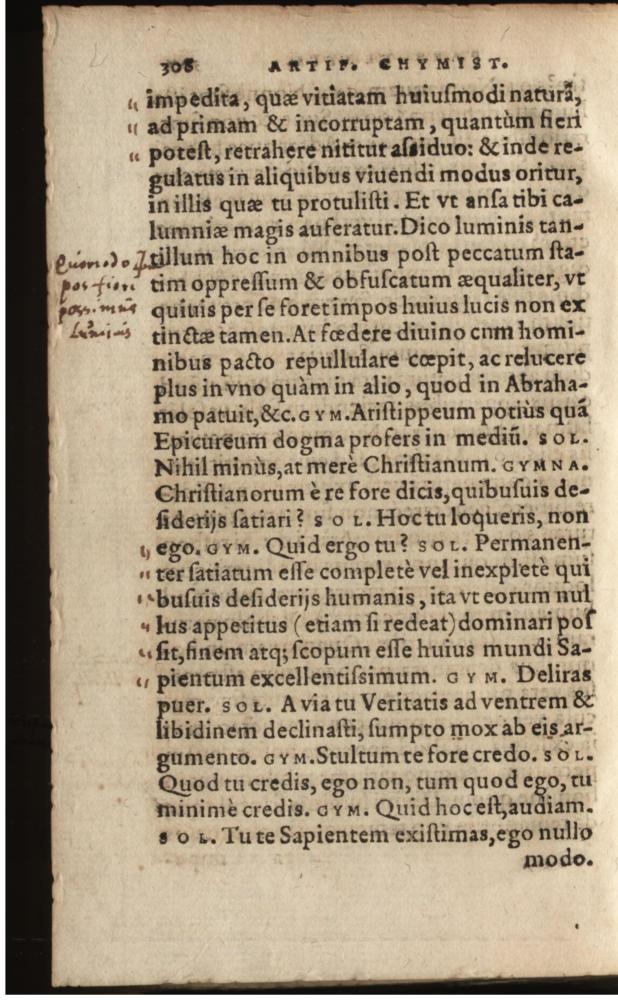 308 ARTIF. CHYMIST.
impedita, quæ vitiatam huiuſmodi naturā,
ad primam & incorruptam, quantùm fieri
poteſt, retrahere nititur aſsiduo: & inde re-
gulatus in aliquibus viuendi modus oritur,
in illis quæ tu protuliſti. Et vt anſa tibi ca-
lumniæ magis auferatur. Dico luminis tan-
tillum hoc in omnibus poſt peccatum ſta-
tim oppreſſum & obfuſcatum æqualiter, vt
quiuis per ſe foret impos huius lucis non ex
tinctæ tamen. At fœdere diuino cnm homi-
nibus pacto repullulare cœpit, ac relucere
plus in vno quàm in alio, quod in Abraha-
mo patuit, &c. GYM. Ariſtippeum potiùs quā
Epicureum dogma profers in mediū. SOL.
Nihil minùs, at merè Chriſtianum. GYMNA.
Chriſtianorum è re fore dicis, quibuſuis de-
ſiderijs ſatiari? SOL. Hoc tu loqueris, non
ego. GYM. Quid ergo tu? SOL. Permanen-
ter ſatiatum eſſe completè vel inexpletè qui
buſuis deſiderijs humanis, ita vt eorum nul
lus appetitus (etiam ſi redeat) dominari poſ
ſit, finem atq; ſcopum eſſe huius mundi Sa-
pientum excellentiſsimum. GYM. Deliras
puer. SOL. A via tu Veritatis ad ventrem &
libidinem declinaſti, ſumpto mox ab eis ar-
gumento. GYM. Stultum te fore credo. SOL.
Quod tu credis, ego non, tum quod ego, tu
minimè credis. GYM. Quid hoc eſt, audiam.
SOL. Tu te Sapientem exiſtimas, ego nullo
modo.